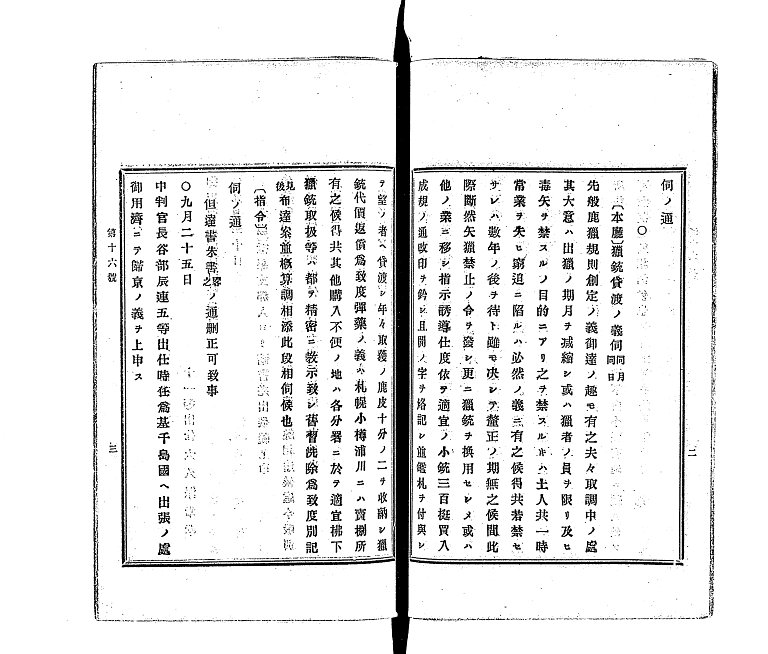 伺ノ通
〔本廳〕獵銃貸渡ノ義伺同月同日
先般鹿獵規則創定ノ義御達ノ趣モ有之夫々取調中ノ處
其大意ハ出獵ノ期月ヲ減縮シ或ハ獵者ノ員ヲ限リ及ヒ
毒矢ヲ禁スルノ目的ニアリ之ヲ禁スルキハ土人共一時
常業ヲ失ヒ窮迫ニ陥ルハ必然ノ義ニ有之候得共若禁セ
サレハ數年ノ後ヲ待ト雖モ決シテ釐正ノ期無之候間此
際斷然矢獵禁止ノ令ヲ發シ更ニ獵銃ヲ換用セシメ或ハ
他ノ業ニ移シ指示誘導仕度依テ適宜ノ小銃三百挺買入
成規ノ通改印ヲ鈐シ且開ノ字ヲ烙記シ鑑札ヲ付與シ
二
ヲ望ノ者ヘ貸渡シ年々取獲ノ鹿皮十分ノ二ヲ收納シ獵
銃代價返償爲致度彈藥ノ義ハ札幌小樽浦川ニハ賣捌所
有之候得共其他購入不便ノ地ハ各分署ニ於テ適宜拂下
獵銃取扱等ハ都テ精密ニ敎示致シ舊習洗除爲致度別記
見後布達案並概算調相添此段相伺候也
〔指令〕
伺ノ通
但達書朱書之畧ノ通刪正可致事
〇九月二十五日
中判官長谷部辰連五等出仕時任爲基千島國ヘ出張ノ處
御用濟ニテ歸京ノ義ヲ上申ス
第十六號
三